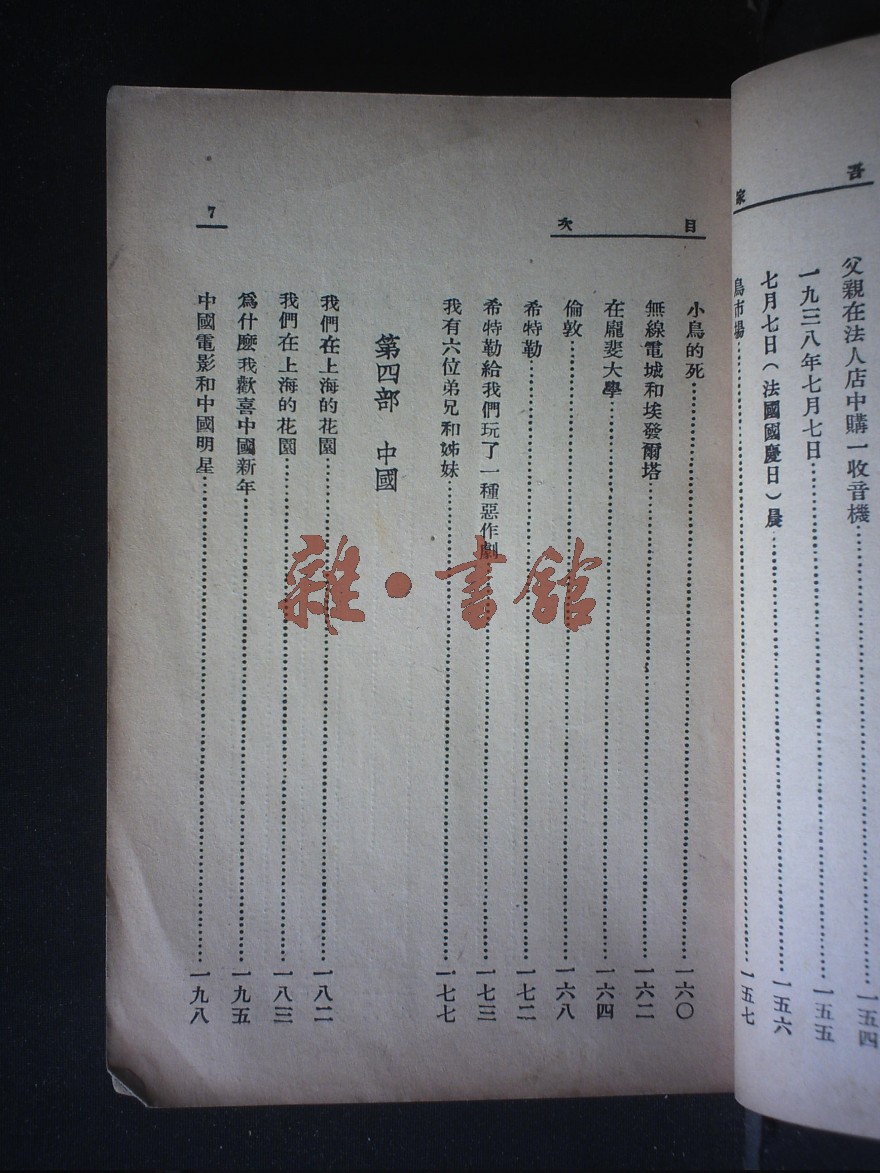 吾
家
父親在法人店中購一收音機……一五四
一九三八年七月七日……一五五
七月七日（法國國慶日）晨……一五六
鳥市場……一五七
目次
小鳥的死……一六〇
無線電城和埃發爾塔……一六二
在龐斐大學……一六四
倫敦……一六八
希特勒……一七二
希特勒給我們玩了一種惡作劇……一七三
我有六位弟兄和姊妹……一七七
第四部 中國
我們在上海的花園……一八二
我們在上海的花園……一八三
爲什麼我歡喜中國新年……一九五
中國電影和中國明星……一九八
7
雜·書館